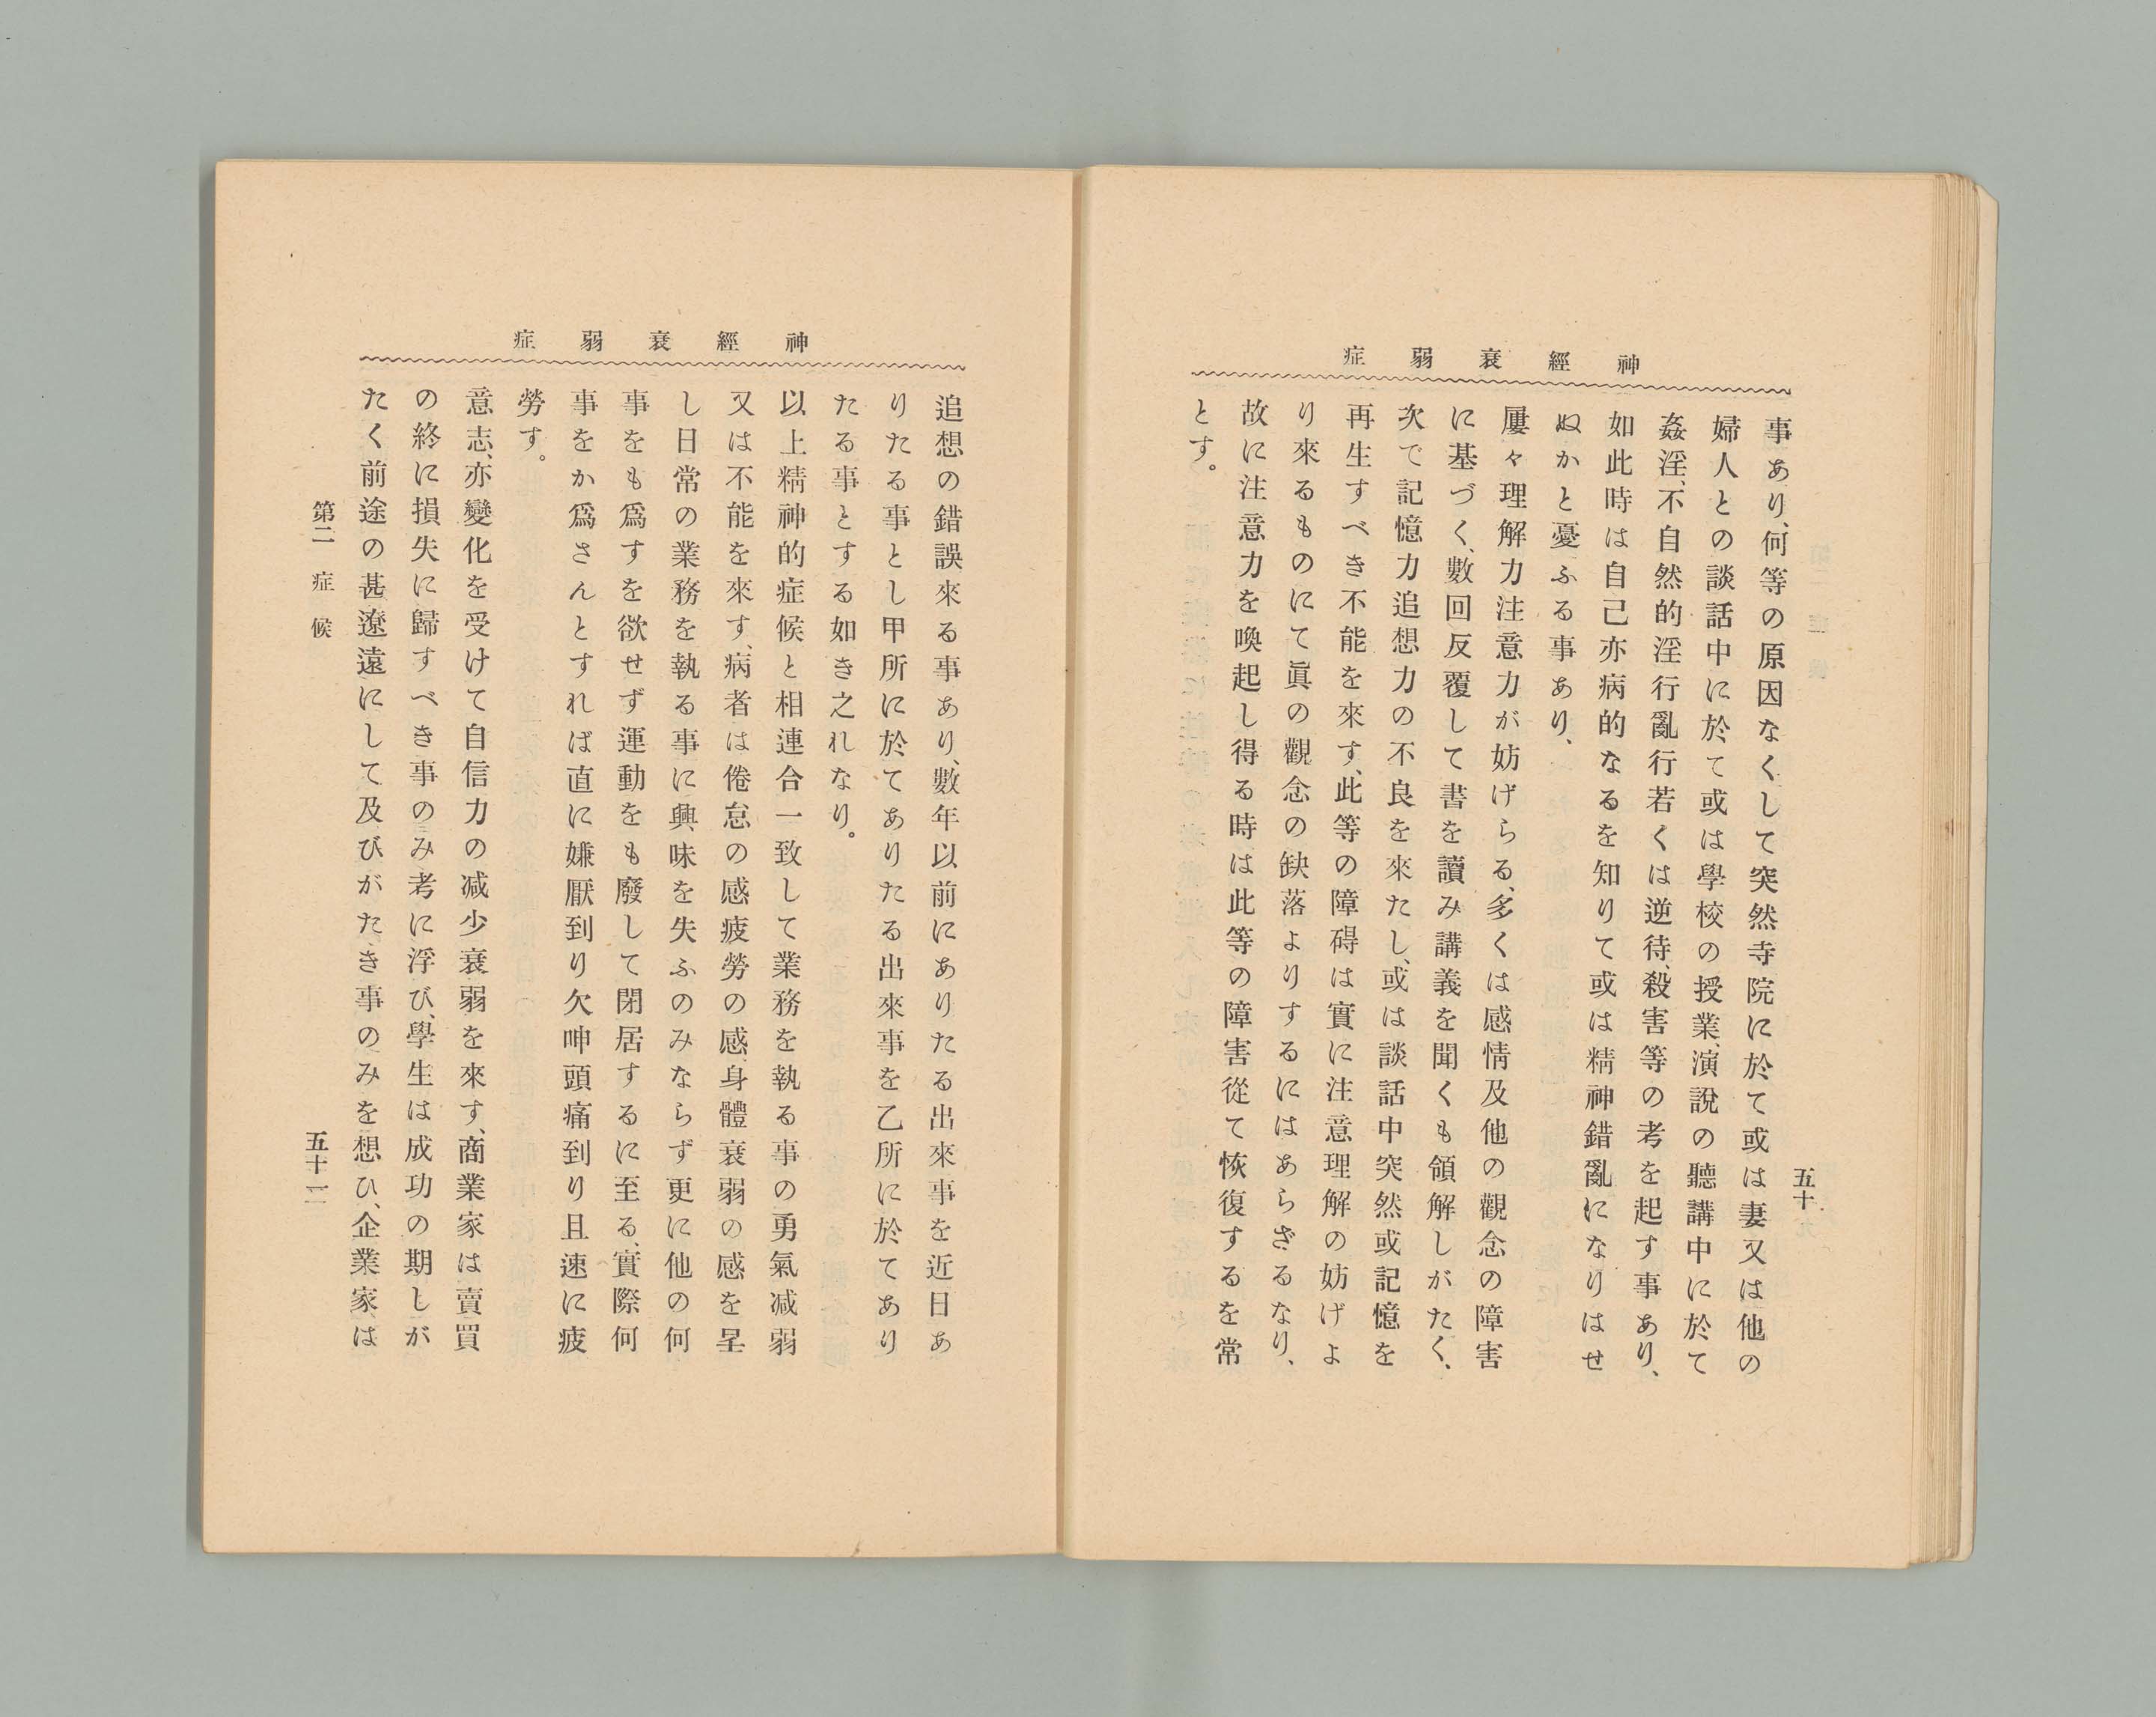 神經衰弱症
五十
事あり、何等の原因なくして突然寺院に於て或は妻又は他の
婦人との談話中に於て或は學校の授業、演說の聽講中に於て
姦淫、不自然的淫行亂行若くは逆待、殺害等の考を起す事あり、
如此時は自己亦病的なるを知りて或は精神錯亂になりはせ
ぬかと憂ふる事あり、
屢々理解力注意力が妨げらる、多くは感情及他の觀念の障害
に基づく、數回反覆して書を讀み講義を聞くも領解しがたく、
次で記憶力追想力の不良を來たし、或は談話中突然或記憶を
再生すべき不能を來す、此等の障碍は實に注意理解の妨げよ
り來るものにて眞の觀念の缺落よりするにはあらざるなり、
故に注意力を喚起し得る時は此等の障害從て恢復するを常
とす。
神經衰弱症
追想の錯誤來る事あり、數年以前にありたる出來事を近日あ
りたる事とし甲所に於てありたる出來事を乙所に於てあり
たる事とする如き之れなり。
以上精神的症候と相連合一致して業務を執る事の勇氣減弱
又は不能を來す、病者は倦怠の感疲勞の感、身體衰弱の感を呈
し日常の業務を執る事に興味を失ふのみならず更に他の何
事をも爲すを欲せず運動をも廢して閉居するに至る、實際何
事をか爲さんとすれば直に嫌厭到り欠呻頭痛到り且速に疲
勞す。
意志、亦變化を受けて自信力の減少衰弱を來す、商業家は賣買
の終に損失に歸すべき事のみ考に浮び、學生は成功の期しが
たく前途の甚遼遠にして及びがたき事のみを想ひ、企業家は
第二 症候
五十一